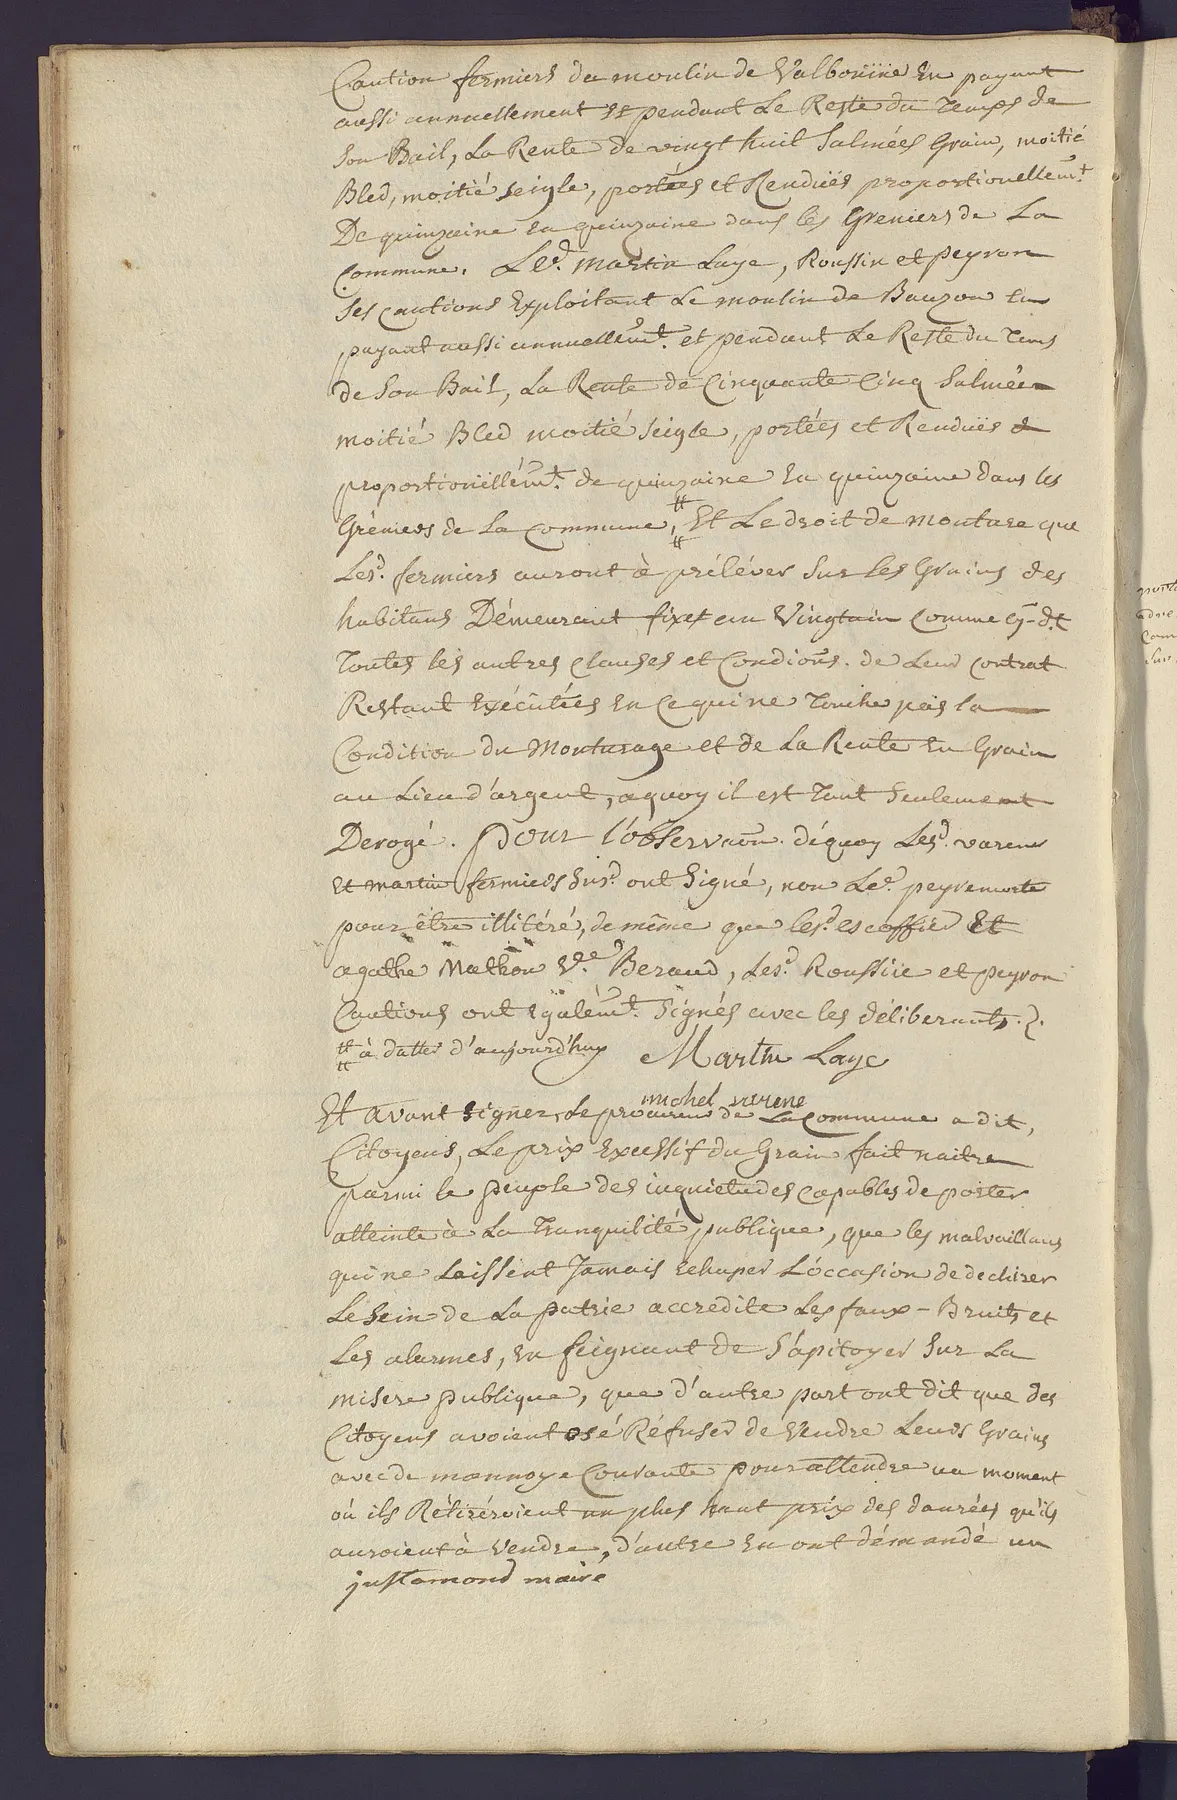 Caution fermiers du moulin de Valbonne En payant
aussi annuellement Et pendant Le Reste du Temps de
Son Bail, La Rente de vingt huit Salmées Grain, moitié
Bled, moitié seigle, portées et Renduës proportionellemt.
De quinzaine en quinzaine dans les Greniers de La
Commune. Led. martin Laye, Roussin et peyron
Ses cautions Exploitant Le moulin de Bauzon En
payant aussi annuellemt. et pendant Le Reste du Tems
de Son Bail, La Rente de Cinquante Cinq Salmées
moitié Bled moitié Seigle, portées et Renduës
proportionéllémt. de quinzaine En quinzaine dans les
Gréniers de La Commune, # Et Le droit de mouture que
Lesd. fermiers auront à préléver Sur les Grains des
habitans Démeurant fixé au Vingtain Comme cy-dt.
Toutes les autres clauses et Condions. de Leur contrat
Restant Exécutées En ce qui ne Touche pas la
Condition du Mouturage et de La Rente En Grain
au Lieu d'argent, a quoy il est Tant Seulement
Derogé. Pour l'observaon. déquoy Lesd. varene
Et martin fermiers Susd. ont Signé, non Led. peyremorte
pour être illitéré, de même que lesd. escoffier Et
agathe Mathon Vee. Beraud, Lesd. Roussin et peyron
Cautions ont Egalémt. Signés avec les déliberants.
# à datter d'aujourd'huy Martin Laye
michel varene
Et avant Signer, Le procureur de La Commune a dit,
Citoyens, Le prix Excessif du Grain fait naitre
parmi le peuple des inquietudes capables de porter
atteinte à La Tranquilité publique, que les malvaillans
qui ne Laissent Jamais Echaper L'occasion de dechirer
Le Sein de La patrie accredite Les faux-Bruits et
Les alarmes, En feignant de S'apitoyer Sur La
misere publique, que d'autre part ont dit que des
Citoyens avoient osé Réfuser de Vendre Leurs Grains
avec de monnoye Courante pour attendre un moment
où ils Rétiréroient un plus haut prix des danrées qu'ils
auroient à Vendre, d'autre En ont démandé un
justamond maire